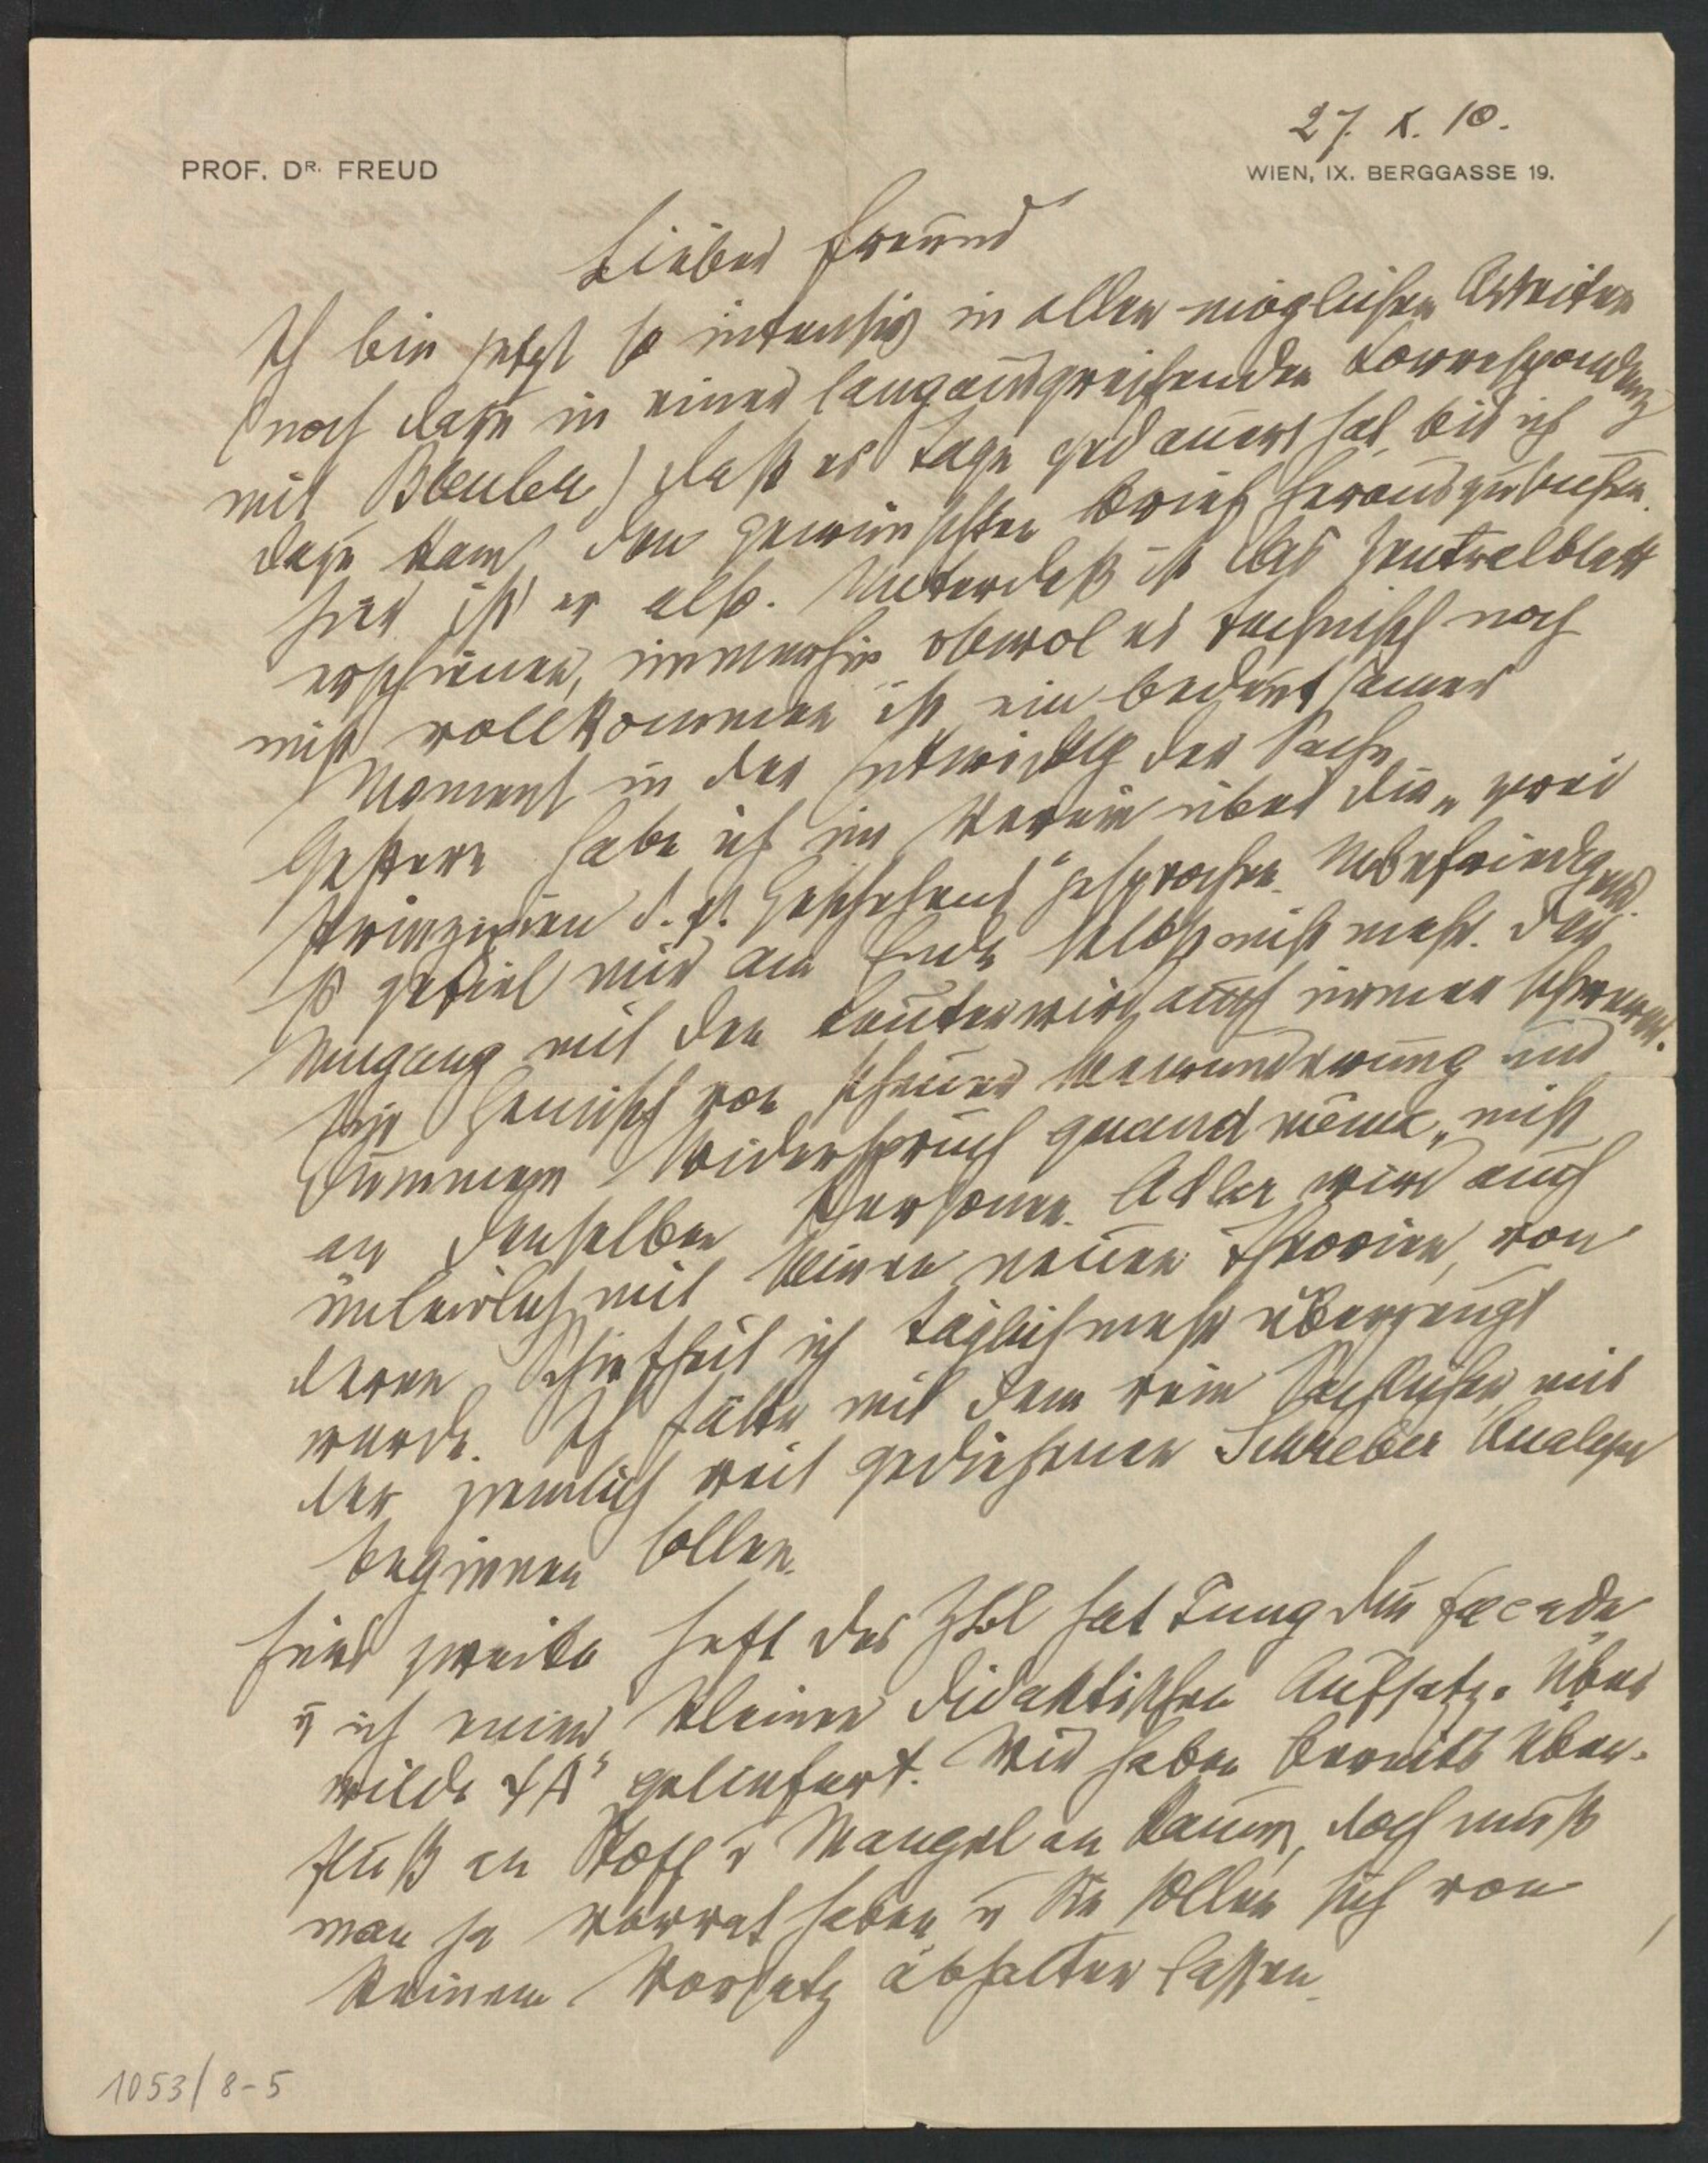 27. X. 10.
PROF. DR. FREUD
WIEN, IX. BERGGASSE 19.
Lieber Freund
Ich bin jetzt so intensiv in allen möglichen Arbeiten
(noch dazu in einer langausgreifenden Korrespondenz
mit Bleuler) daß es Tage gedauert hat, bis ich
dazu kam den gewünschten Brief herauszusuchen.
Hier ist er also. Unterdeß ist das Zentralblatt
erschienen, immerhin obwol es technisch noch
nicht vollkommen ist ein bedeutsamer
Moment in der Entwicklg der Sache.
Gestern habe ich im Verein über die „zwei
Prinzipien d. ps. Geschehens" gesprochen. Unbefriedigend.
so gefiel mir am Ende selbst nicht mehr. Der
Umgang mit den Leuten wird auch immer schwerer.
Ein Gemisch von scheuer Bewunderung und
dummem Widerspruch quand même, nicht
an denselben Personen. Adler wird auch
mit seinen neuen Theorien, von
deren Schiefheit ich täglich mehr überzeugt
werde. Ich hätte mit dem rein Sachlichen mit
der ziemlich weit gediehenen Schreber Analyse
beginnen sollen.
Fürs zweite Heft des Zbl hat Jung die Facade
u ich einen kleinen didaktischen Aufsatz: Über
wilde ΨA" geliefert. Wir haben bereits Über-
fluß an Stoff u Mangel an Raum, doch muß
man ja Vorrat haben u Sie sollen sich von
keinem Vorsatz abhalten lassen.
1053/8-5